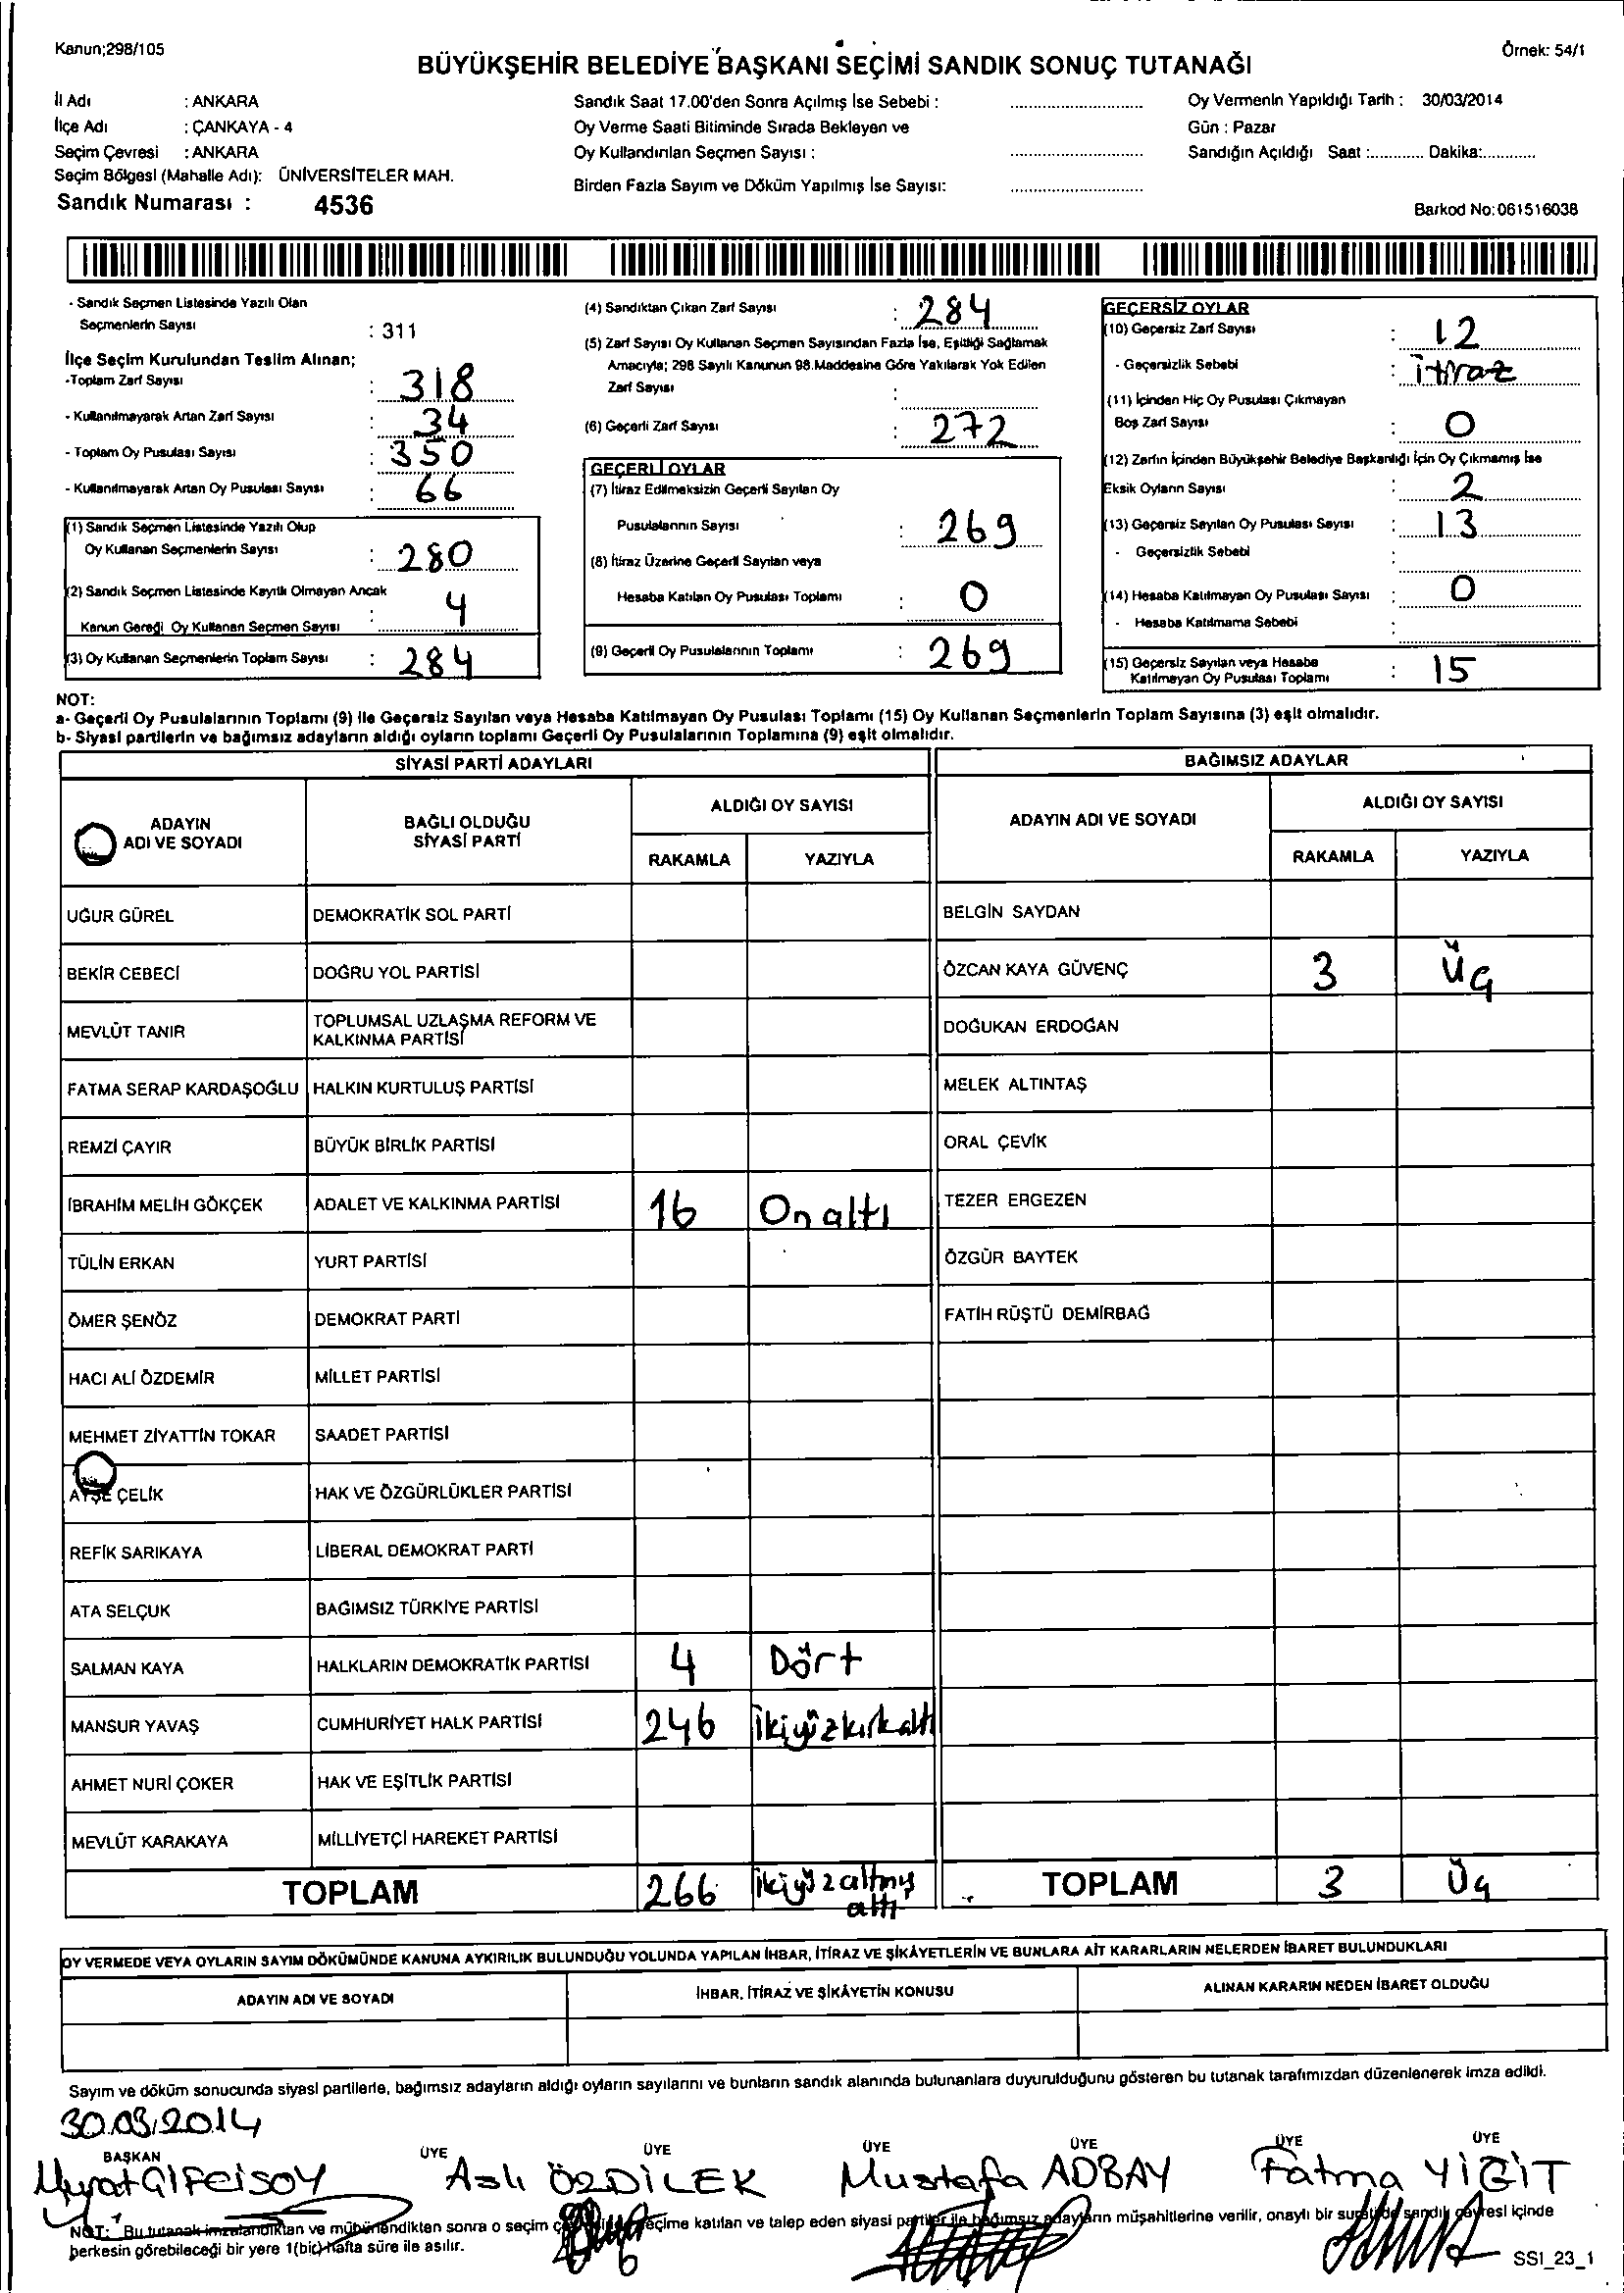 Kanun;298/105
Örnek: 54/1
BÜYÜKŞEHİR BELEDİYE BAŞKANI SEÇİMİ SANDIK SONUÇ TUTANAĞI
İl Adı : ANKARA
İlçe Adı : ÇANKAYA - 4
Seçim Çevresi : ANKARA
Seçim Bölgesi (Mahalle Adı): ÜNİVERSİTELER MAH.
Sandık Numarası : 4536
Sandık Saat 17.00'den Sonra Açılmış İse Sebebi :
Oy Verme Saati Bitiminde Sırada Bekleyen ve
Oy Kullandırılan Seçmen Sayısı :
Birden Fazla Sayım ve Döküm Yapılmış İse Sayısı:
Oy Vermenin Yapıldığı Tarih : 30/03/2014
Gün : Pazar
Sandığın Açıldığı Saat :............ Dakika:............
Barkod No:061516038
- Sandık Seçmen Listesinde Yazılı Olan
Seçmenlerin Sayısı : 311
İlçe Seçim Kurulundan Teslim Alınan;
-Toplam Zarf Sayısı : 318
- Kullanılmayarak Artan Zarf Sayısı : 34
- Toplam Oy Pusulası Sayısı : 350
- Kullanılmayarak Artan Oy Pusulası Sayısı : 66
(1) Sandık Seçmen Listesinde Yazılı Olup
Oy Kullanan Seçmenlerin Sayısı : 280
(2) Sandık Seçmen Listesinde Kayıtlı Olmayan Ancak
Kanun Gereği Oy Kullanan Seçmen Sayısı : 4
(3) Oy Kullanan Seçmenlerin Toplam Sayısı : 284
(4) Sandıktan Çıkan Zarf Sayısı : 284
(5) Zarf Sayısı Oy Kullanan Seçmen Sayısından Fazla İse, Eşitliği Sağlamak
Amacıyla; 298 Sayılı Kanunun 98.Maddesine Göre Yakılarak Yok Edilen
Zarf Sayısı :
(6) Geçerli Zarf Sayısı : 272
GEÇERLİ OYLAR
(7) İtiraz Edilmeksizin Geçerli Sayılan Oy
Pusulalarının Sayısı : 269
(8) İtiraz Üzerine Geçerli Sayılan veya
Hesaba Katılan Oy Pusulası Toplamı : 0
(9) Geçerli Oy Pusulalarının Toplamı : 269
GEÇERSİZ OYLAR
(10) Geçersiz Zarf Sayısı : 12
- Geçersizlik Sebebi : itiraz
(11) İçinden Hiç Oy Pusulası Çıkmayan
Boş Zarf Sayısı : 0
(12) Zarfın İçinden Büyükşehir Belediye Başkanlığı İçin Oy Çıkmamış İse
Eksik Oyların Sayısı : 2
(13) Geçersiz Sayılan Oy Pusulası Sayısı : 13
- Geçersizlik Sebebi :
(14) Hesaba Katılmayan Oy Pusulası Sayısı : 0
- Hesaba Katılmama Sebebi :
(15) Geçersiz Sayılan veya Hesaba
Katılmayan Oy Pusulası Toplamı : 15
NOT:
a- Geçerli Oy Pusulalarının Toplamı (9) ile Geçersiz Sayılan veya Hesaba Katılmayan Oy Pusulası Toplamı (15) Oy Kullanan Seçmenlerin Toplam Sayısına (3) eşit olmalıdır.
b- Siyasi partilerin ve bağımsız adayların aldığı oyların toplamı Geçerli Oy Pusulalarının Toplamına (9) eşit olmalıdır.
SİYASİ PARTİ ADAYLARI
ADAYIN ADI VE SOYADI
BAĞLI OLDUĞU SİYASİ PARTİ
ALDIĞI OY SAYISI
RAKAMLA YAZIYLA
UĞUR GÜREL DEMOKRATİK SOL PARTİ
BEKİR CEBECİ DOĞRU YOL PARTİSİ
MEVLÜT TANIR TOPLUMSAL UZLAŞMA REFORM VE KALKINMA PARTİSİ
FATMA SERAP KARDAŞOĞLU HALKIN KURTULUŞ PARTİSİ
REMZİ ÇAYIR BÜYÜK BİRLİK PARTİSİ
İBRAHİM MELİH GÖKÇEK ADALET VE KALKINMA PARTİSİ 16 On altı
TÜLİN ERKAN YURT PARTİSİ
ÖMER ŞENÖZ DEMOKRAT PARTİ
HACI ALİ ÖZDEMİR MİLLET PARTİSİ
MEHMET ZİYATTİN TOKAR SAADET PARTİSİ
AYŞE ÇELİK HAK VE ÖZGÜRLÜKLER PARTİSİ
REFİK SARIKAYA LİBERAL DEMOKRAT PARTİ
ATA SELÇUK BAĞIMSIZ TÜRKİYE PARTİSİ
SALMAN KAYA HALKLARIN DEMOKRATİK PARTİSİ 4 Dört
MANSUR YAVAŞ CUMHURİYET HALK PARTİSİ 246 İkiyüzkırkaltı
AHMET NURİ ÇOKER HAK VE EŞİTLİK PARTİSİ
MEVLÜT KARAKAYA MİLLİYETÇİ HAREKET PARTİSİ
TOPLAM 266 İkiyüzaltmış altı
BAĞIMSIZ ADAYLAR
ADAYIN ADI VE SOYADI
ALDIĞI OY SAYISI
RAKAMLA YAZIYLA
BELGİN SAYDAN
ÖZCAN KAYA GÜVENÇ 3 Üç
DOĞUKAN ERDOĞAN
MELEK ALTINTAŞ
ORAL ÇEVİK
TEZER ERGEZEN
ÖZGÜR BAYTEK
FATİH RÜŞTÜ DEMİRBAĞ
TOPLAM 3 Üç
OY VERMEDE VEYA OYLARIN SAYIM DÖKÜMÜNDE KANUNA AYKIRILIK BULUNDUĞU YOLUNDA YAPILAN İHBAR, İTİRAZ VE ŞİKÂYETLERİN VE BUNLARA AİT KARARLARIN NELERDEN İBARET BULUNDUKLARI
ADAYIN ADI VE SOYADI
İHBAR, İTİRAZ VE ŞİKÂYETİN KONUSU
ALINAN KARARIN NEDEN İBARET OLDUĞU
Sayım ve döküm sonucunda siyasi partilerle, bağımsız adayların aldığı oyların sayılarını ve bunların sandık alanında bulunanlara duyurulduğunu gösteren bu tutanak tarafımızdan düzenlenerek imza edildi.
30.03.2014
BAŞKAN ÜYE ÜYE ÜYE ÜYE ÜYE ÜYE
Murat Aslı ÖZDİLEK Mustafa ADBAY Fatma YİĞİT
NOT: Bu tutanak imzalandıktan ve mühürlendikten sonra o seçim seçime katılan ve talep eden siyasi partiler ile bağımsız adayların müşahitlerine verilir, onaylı bir sureti de sandık çevresi içinde
herkesin görebileceği bir yere 1(bir) hafta süre ile asılır.
SSI_23_1